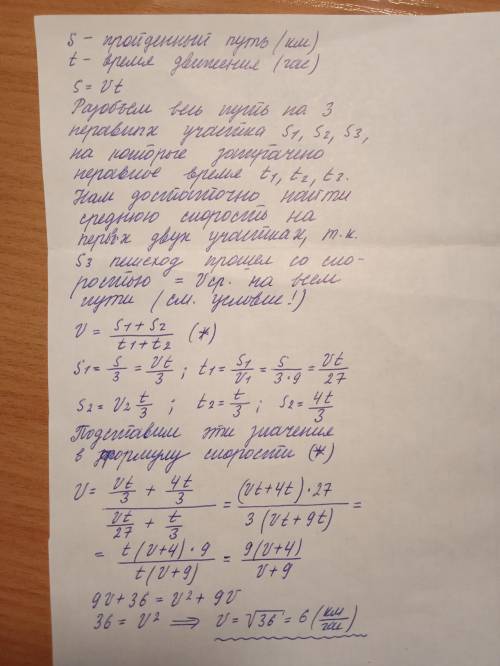 S – пройденный путь (км)
t – время движения (час)
S = Vt
Разобъем весь путь на 3
неравных участка S1, S2, S3,
на которые затрачено
неравное время t1, t2, t3.
Нам достаточно найти
среднюю скорость на
первых двух участках, т.к.
S3 пешеход прошел со ско-
ростью = Vср. на всем
пути (см. условие!)
V = (S1+S2)/(t1+t2) (*)
S1 = S/3 = Vt/3 ; t1 = S1/V1 = S/(3·9) = Vt/27
S2 = V2 t/3 ; t2 = t/3 ; S2 = 4t/3
Подставим эти значения
в формулу скорости (*)
V = (Vt/3 + 4t/3)/(Vt/27 + t/3) = ((Vt+4t)·27)/(3(Vt+9t)) =
= (t(V+4)·9)/(t(V+9)) = 9(V+4)/(V+9)
9V+36 = V² + 9V
36 = V² ⟹ V = √36 = 6 (км/час)